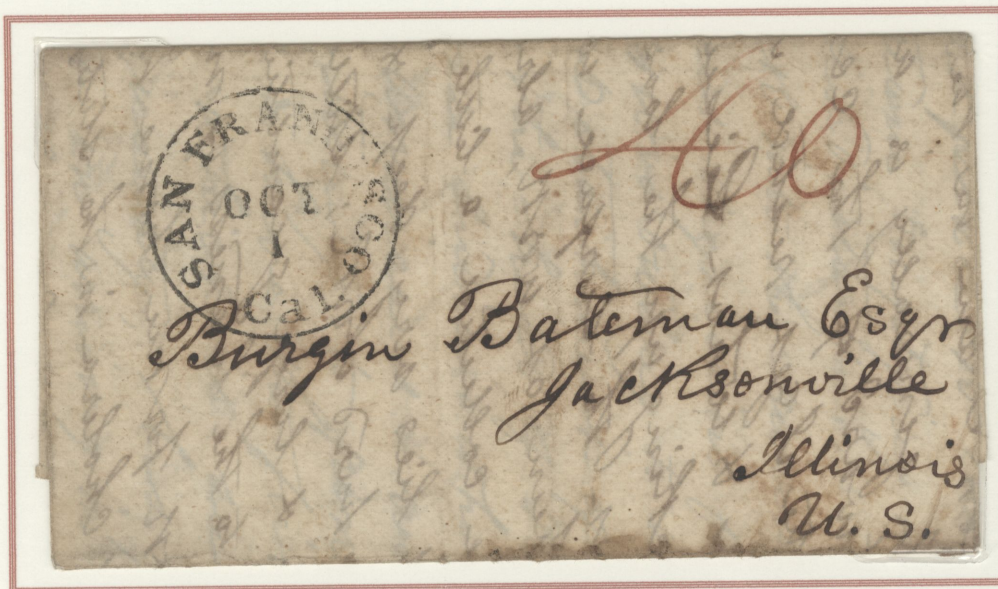 SAN FRANCISCO
OCT
1
Cal.
40
Burgin Bateman Esqr
Jacksonville
Illinois
U. S.